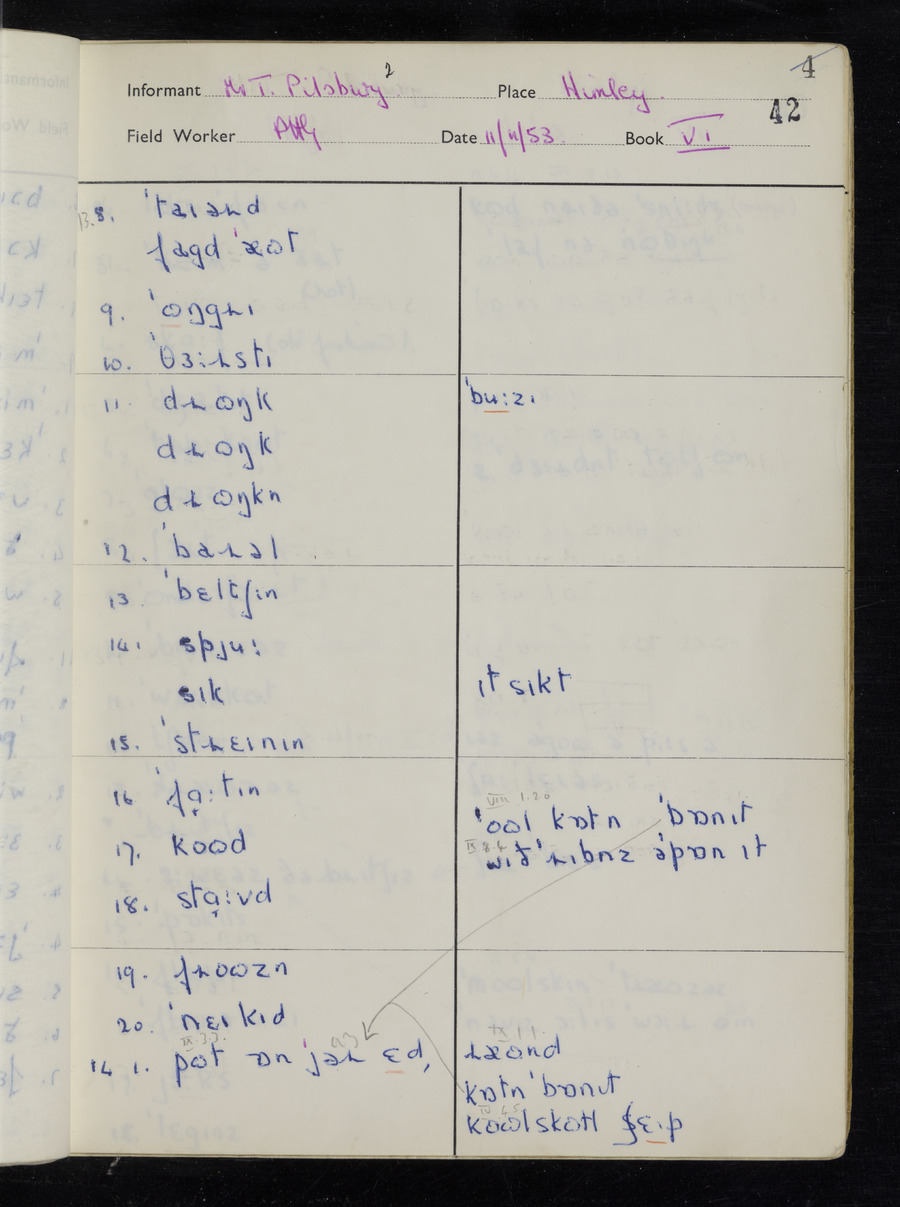 4
Informant Mr T. Pilsbury 2 Place Himley
42
Field Worker PHG Date 11/11/53. Book VI
13.8. ˈtaɪəɹd
fagd ˈæʊt
9. ˈɒŋgɹɪ
10. ˈθɜːɹstɪ
11. dɹɒŋk ˈbuːzɪ
dɹɒŋk
dɹɒŋkn
12. ˈbaɹəl
13. ˈbɛltʃin
14. spjuː
sik ɪt sɪkt
15. ˈstɹɛɪnɪn
16 ˈfaːtin
VIII 1.20
ˈool kɒtn ˈbɒnɪt
17. kood
IX 8.4
wið ˈɹibnz əpɒn it
18. staːvd
19. fɹoozn
20. ˈnɛɪkid
IX.3.3.
14 1. pʊt ɒn jəɹ ɛd,
IX.1.1.
ɹæʊnd
kɒtn ˈbɒnɪt
koolskʊtl ʃɛɪp